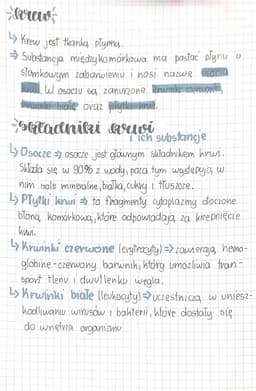 krew:
↳ Krew jest tkanką płynną.
⇒ Substancja międzykomórkowa ma postać płynu o
słomkowym zabarwieniu i nosi nazwę osocza
krwi. W osoczu są zanurzone krwinki czerwone,
krwinki białe oraz płytki krwi.
składniki krwi
i ich substancje
↳ Osocze ⇒ osocze jest głównym składnikiem krwi.
Składa się w 90% z wody, poza tym występują w
nim sole mineralne, białka, cukry i tłuszcze.
↳ Płytki krwi ⇒ to fragmenty cytoplazmy otoczone
błoną komórkową, które odpowiadają za krzepnięcie
krwi.
↳ Krwinki czerwone (erytrocyty) ⇒ zawierają hemo-
globinę - czerwony barwnik, który umożliwia tran-
sport tlenu i dwutlenku węgla.
↳ Krwinki białe (leukocyty) ⇒ uczestniczą w uniesz-
kodliwianiu wirusów i bakterii, które dostały się
do wnętrza organizmu